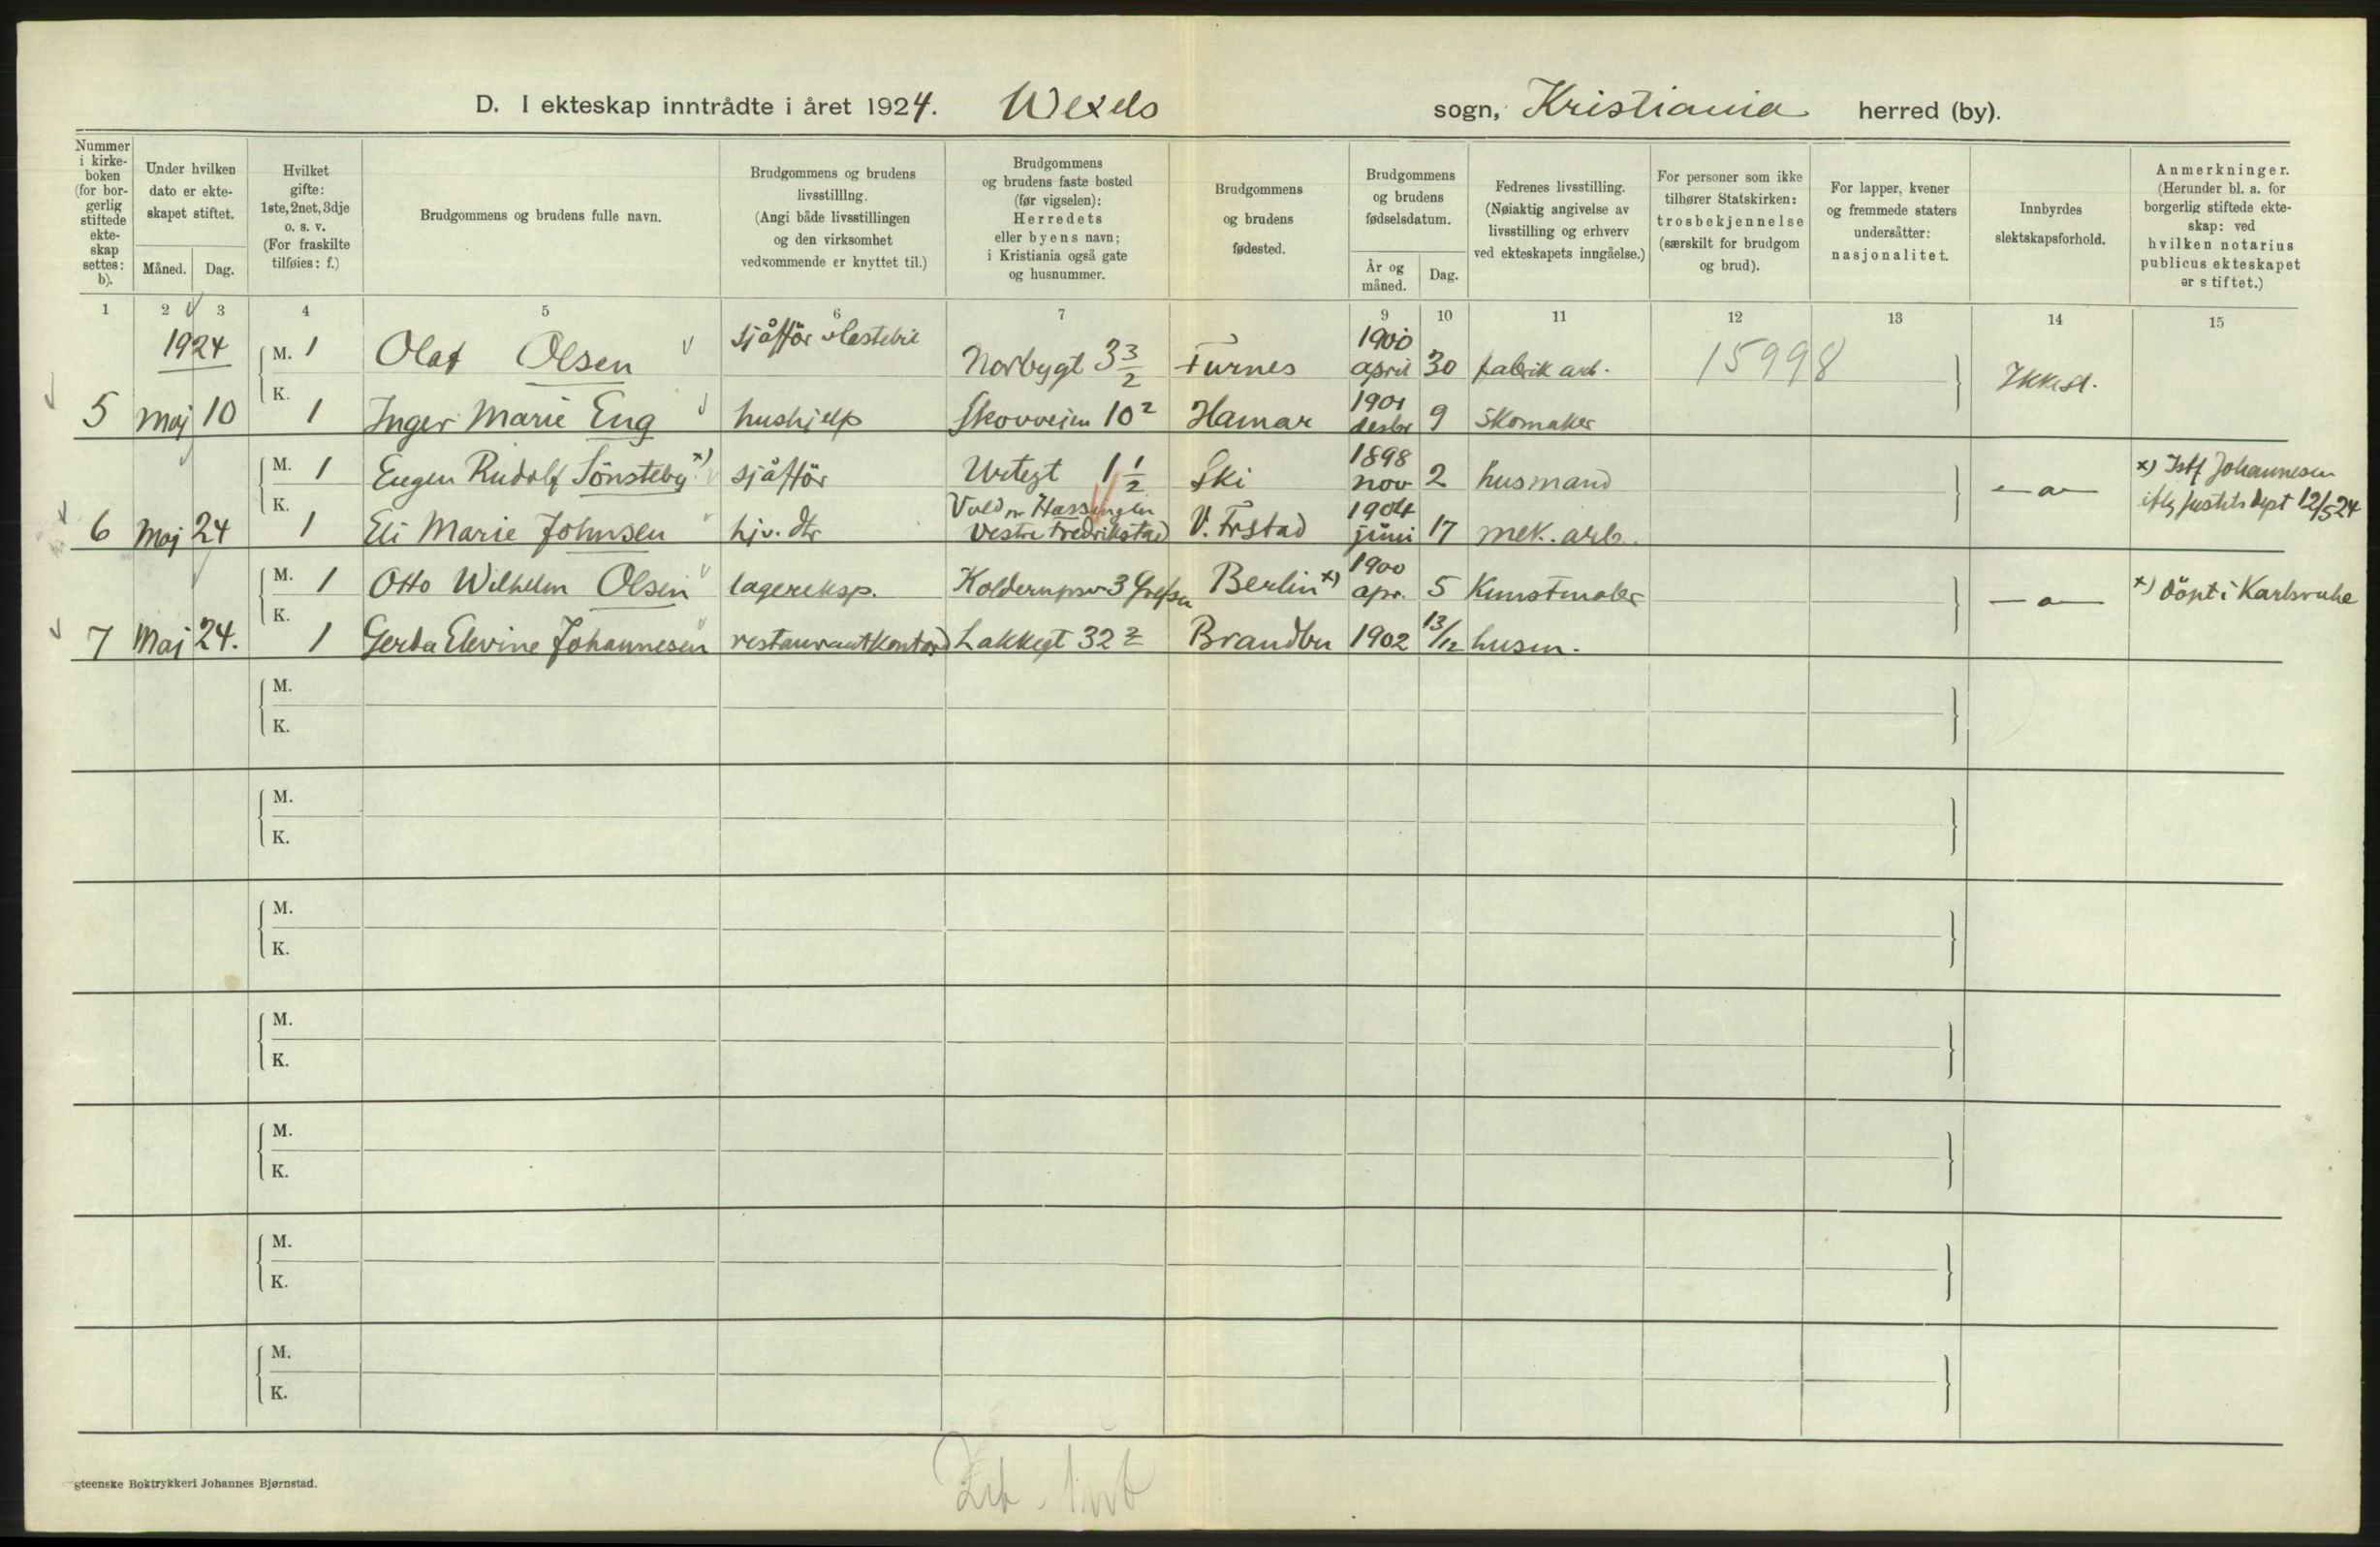 D. I ekteskap inntrådte i året 1924. Wexels sogn, Kristiania herred (by).
Nummer i kirke-boken (for bor-gerlig stiftede ekte-skap settes: b).
Under hvilken dato er ekte-skapet stiftet.
Måned. Dag.
Hvilket gifte: 1ste, 2net, 3dje o. s. v. (For fraskilte tilføies: f.)
Brudgommens og brudens fulle navn.
Brudgommens og brudens livsstilllng. (Angi både livsstillingen og den virksomhet vedkommende er knyttet til.)
Brudgommens og brudens faste bosted (før vigselen): Herredets eller byens navn; i Kristiania også gate og husnummer.
Brudgommens og brudens fødested.
Brudgommens og brudens fødselsdatum.
År og måned. Dag.
Fedrenes livsstilling. (Nøiaktig angivelse av livsstilling og erhverv ved ekteskapets inngåelse.)
For personer som ikke tilhører Statskirken: trosbekjennelse (særskilt for brudgom og brud).
For lapper, kvener og fremmede staters undersåtter: nasjonalitet.
Innbyrdes slektskapsforhold.
Anmerkninger. (Herunder bl. a. for borgerlig stiftede ekte-skap: ved hvilken notarius publicus ekteskapet er stiftet.)
1 2 3 4 5 6 7 9 10 11 12 13 14 15
1924 M. 1 Olaf Olsen sjåffør Norbygt 3 3/2 Furnes 1900 april 30 fabrik arb. 15998
5 Maj 10 K. 1 Inger Marie Eng hushjelp Skovveien 10 2 Hamar 1901 desbr 9 skomaker
M. 1 Eugen Rudolf Sönsteby x) sjåfför Urtegt 1 1/2 Ski 1898 nov 2 husmand —a— x) Istf Johannesen
6 Maj 24 K. 1 Eli Marie Johnsen hjv. dtr Vold pr Hassingen Vestre Fredrikstad V. Frstad 1904 juni 17 mek. arb. iflg justits dept 12/5 24
M. 1 Otto Wilhelm Olsen lagereksp. Kolderupsv 3 Grefsen Berlin x) 1900 apr. 5 Kunstmaler —a— x) döpt i Karlsruhe
7 Maj 24. K. 1 Gerda Elevine Johannesen Lakkegt 32 2 Brandbu 1902 13/12 husm.
M.
K.
M.
K.
M.
K.
M.
K.
M.
K.
M.
K.
M.
K.
steenske Boktrykkeri Johannes Bjørnstad.